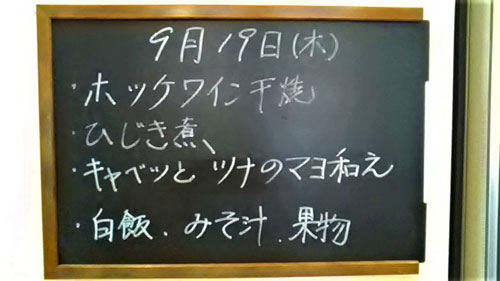 9月19日(木)
・ホッケワイン干焼
・ひじき煮、
・キャベツと ツナのマヨ和え
・白飯.みそ汁.果物